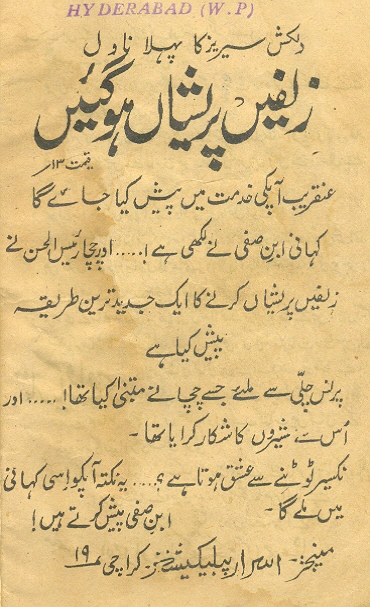 HYDERABAD (W.P)
دلکش سیریز کا پہلا ناول
زلفیں پریشاں ہو گئیں
قیمت ۱۳؍
عنقریب آپکی خدمت میں پیش کیا جائے گا
کہانی ابنِ صفی نے لکھی ہے!..... اور چچا رئیس الحسن نے
زلفیں پریشاں کرنے کا ایک جدید ترین طریقہ
پیش کیا ہے
پرنس چلّی سے ملئے جسے چچا نے متبنیٰ کیا تھا!..... اور
اُس سے شیروں کا شکار کرایا تھا۔
نکسیر ٹوٹنے سے عشق ہوتا ہے؟.... یہ نکتہ آپکو اِسی کہانی
میں ملے گا۔
ابنِ صفی پیش کرتے ہیں!
مینجر۔ اسرار پبلیکیشنز۔ کراچی ۱۹